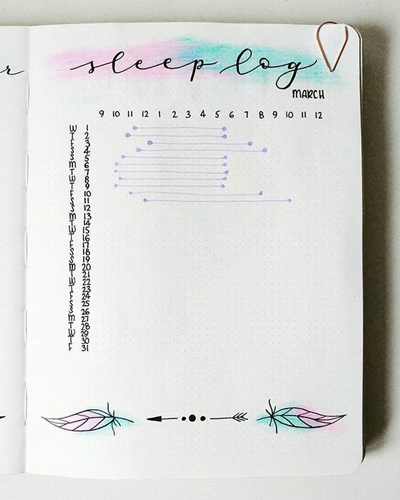 r
sleep log
MARCH
9 10 11 12 1 2 3 4 5 6 7 8 9 10 11 12
W 1
T 2
F 3
S 4
S 5
M 6
T 7
W 8
T 9
F 10
S 11
S 12
M 13
T 14
W 15
T 16
F 17
S 18
S 19
M 20
T 21
W 22
T 23
F 24
S 25
S 26
M 27
T 28
W 29
T 30
F 31